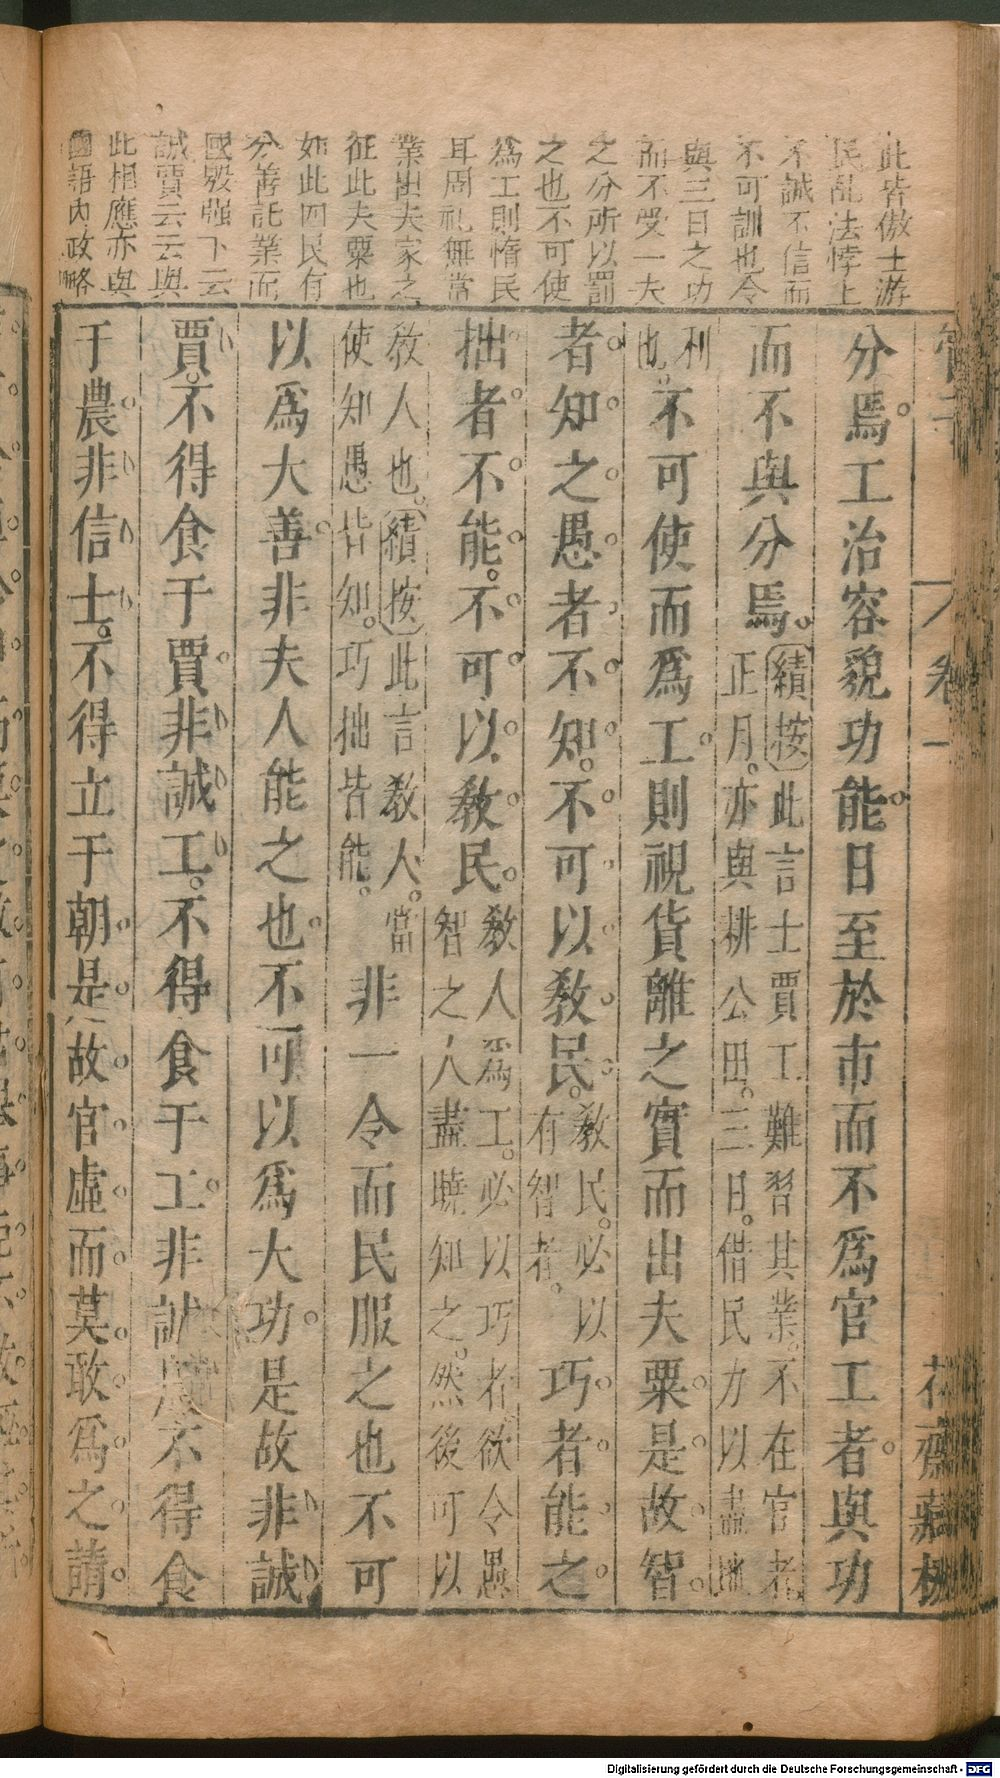 此皆傲士游
民亂法悖上
不誠不信而
不可訓也令
與三日之功
而不受一夫
之分所以罰
之也不可使
爲工則惰民
耳周禮無常
業出夫家之
征此夫粟也
如此四民有
分善託業而
國毀强下云
誠賈云云與
此相應亦與
國語內政略
管子
卷一
花齋藏板
分焉工治容貌功能日至於市而不爲官工者與功
而不與分焉績按此言士賈工難習其業不在官者
正月亦與耕公田三日借民力以盡地
利
也不可使而爲工則視貨離之實而出夫粟是故智
者知之愚者不知不可以敎民敎民必以
有智者巧者能之
拙者不能不可以敎民敎人爲工必以巧者欲令愚
智之人盡曉知之然後可以
敎人也績按此言敎人當
使知愚皆知巧拙皆能非一令而民服之也不可
以爲大善非夫人能之也不可以爲大功是故非誠
賈不得食于賈非誠工不得食于工非誠農不得食
于農非信士不得立于朝是故官虛而莫敢爲之請
Digitalisierung gefördert durch die Deutsche Forschungsgemeinschaft - DFG